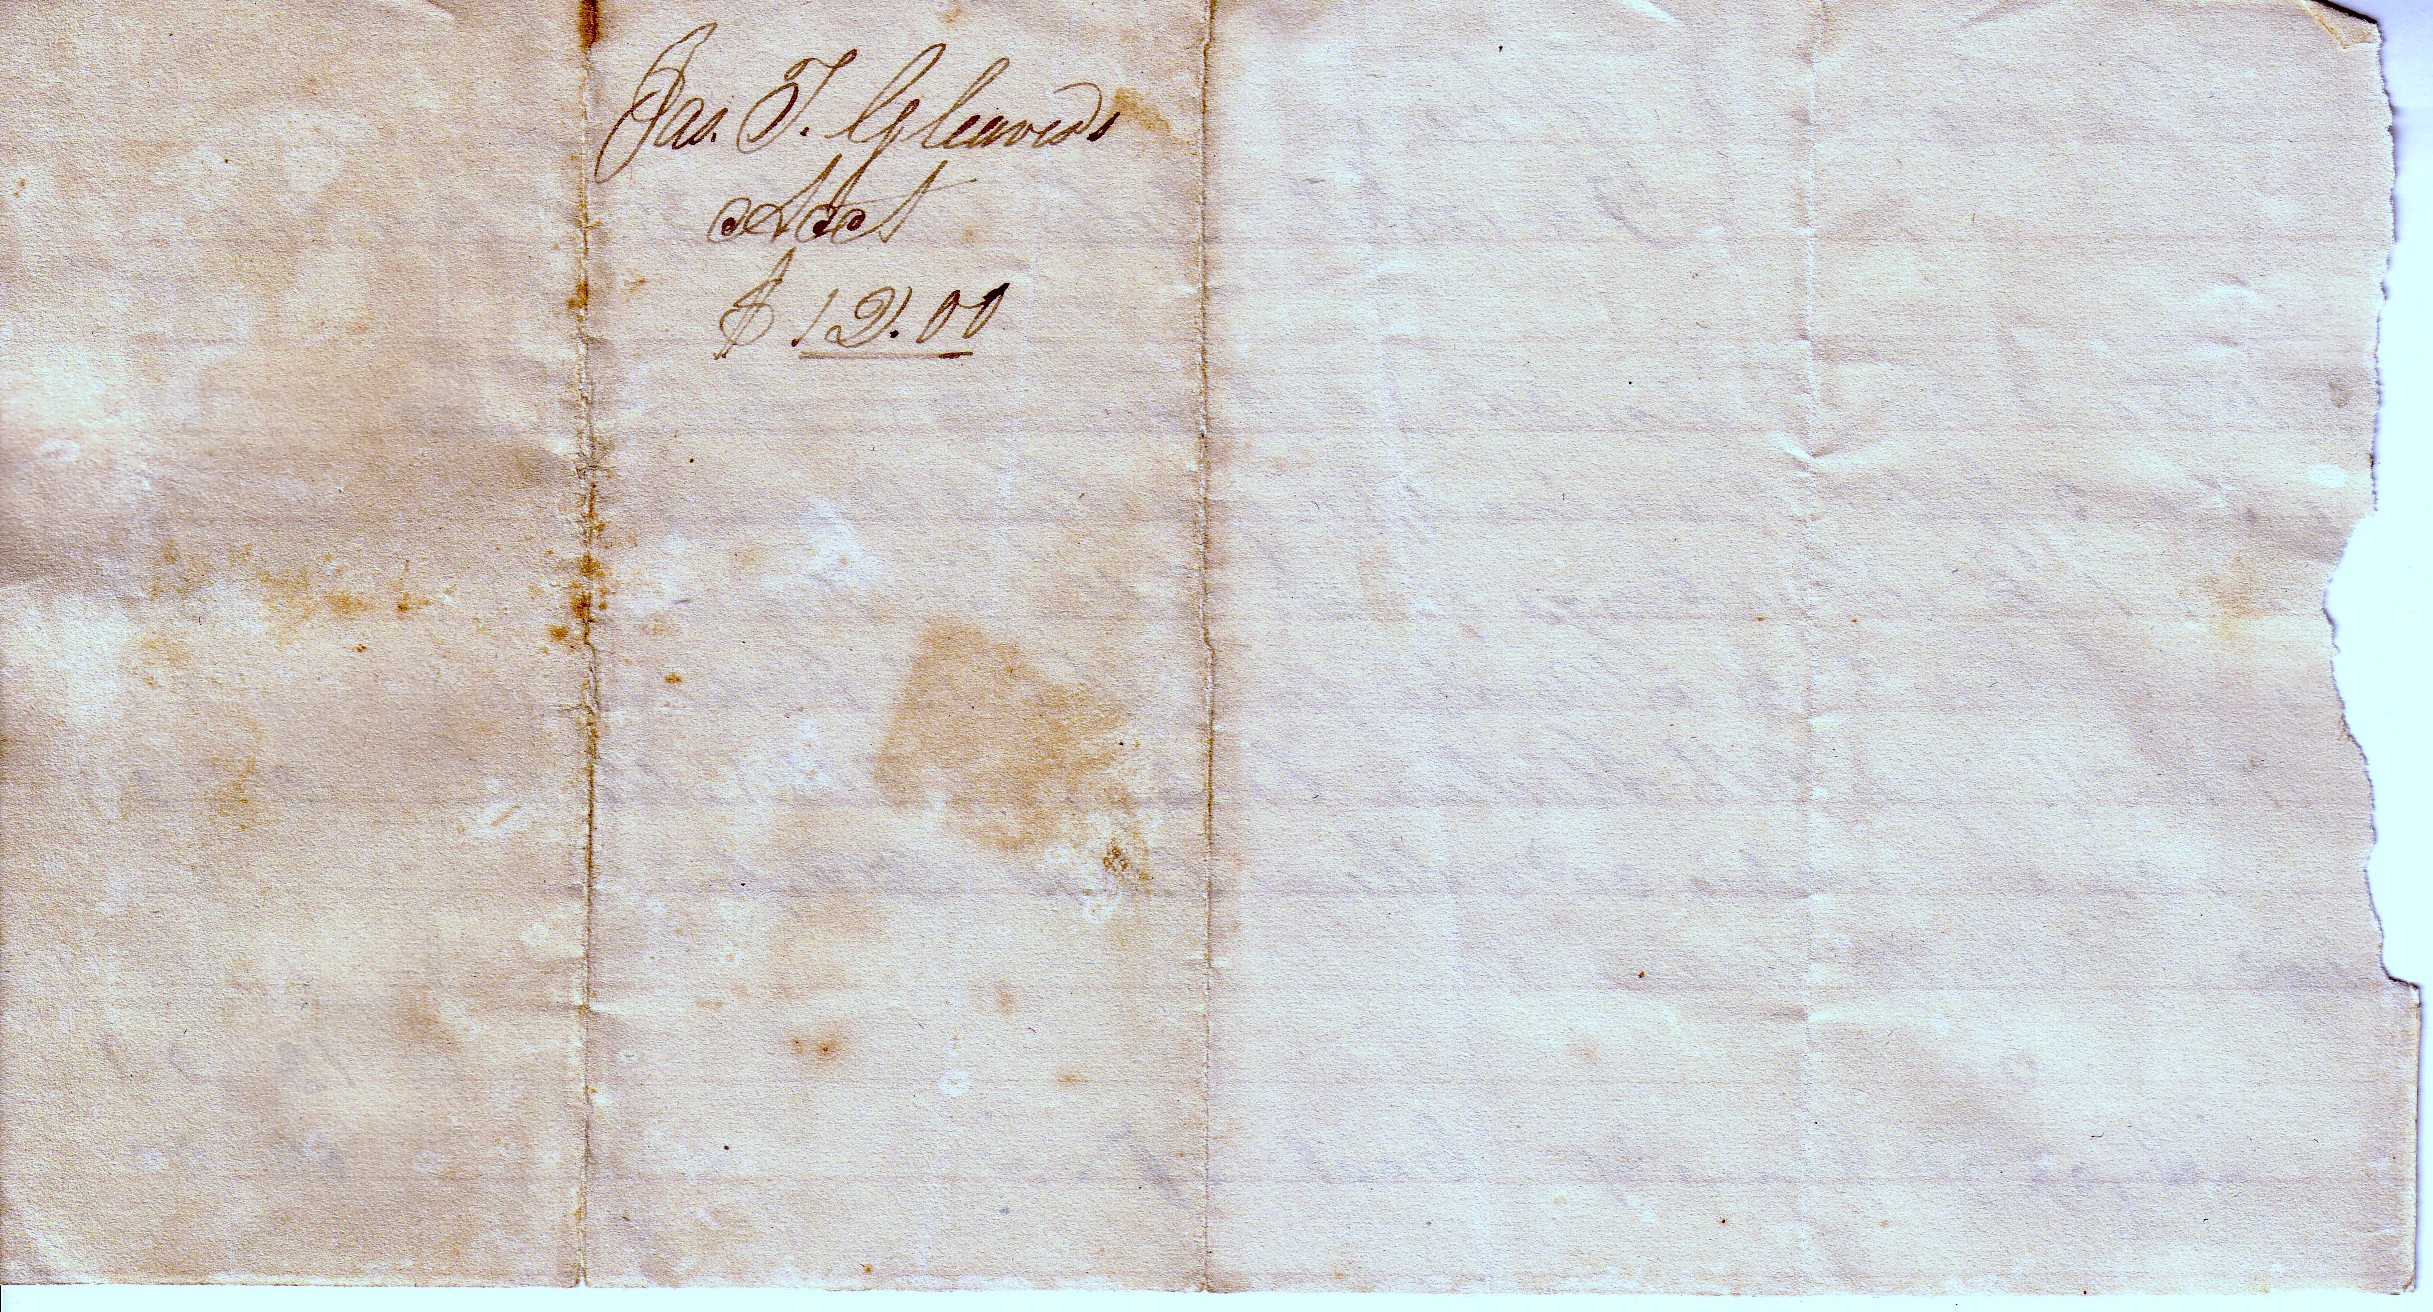 Jas. T. Gleaves
Acct
$12.00